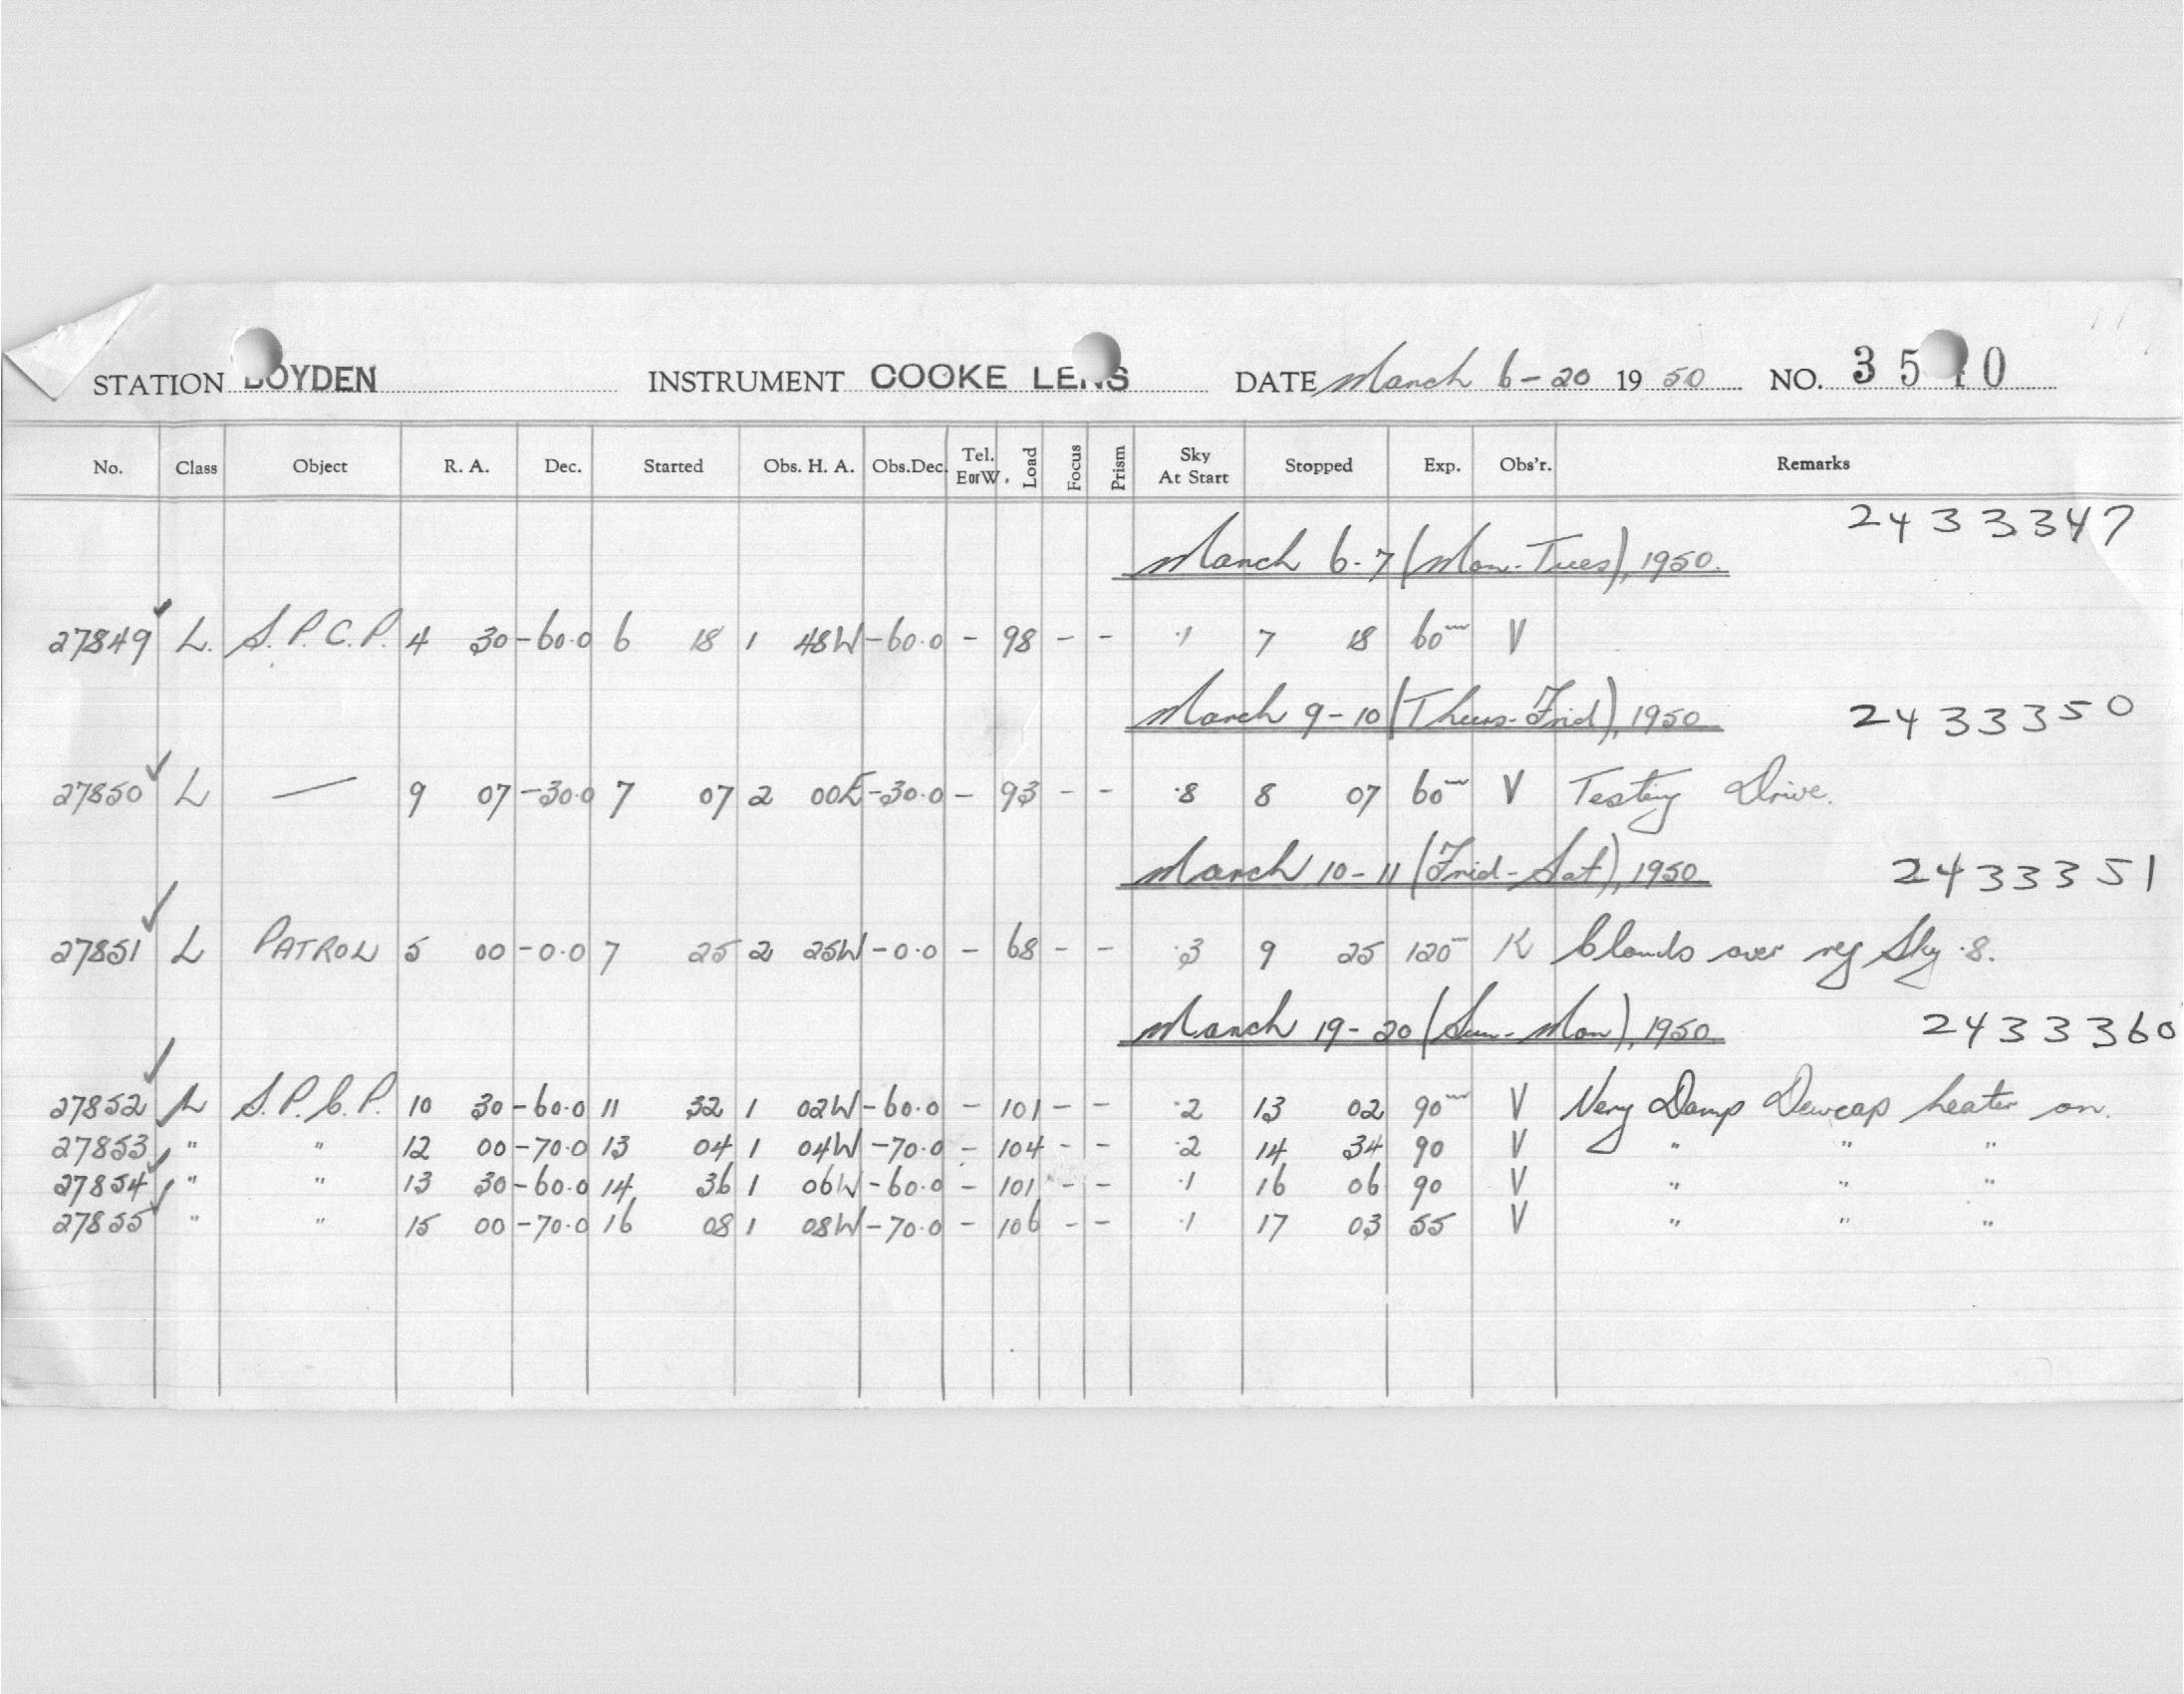 STATION BOYDEN INSTRUMENT COOKE LENS DATE March 6-20 1950 NO. 35 0
No. Class Object R. A. Dec. Started Obs. H. A. Obs.Dec. Tel. EorW. Load Focus Prism Sky At Start Stopped Exp. Obs'r. Remarks
2433347
March 6-7 (Mon-Tues), 1950.
27849 ✓ L. S.P.C.P. 4 30 -60.0 6 18 1 48W -60.0 - 98 - - .1 7 18 60m V
March 9-10 (Thurs-Frid), 1950 2433350
27850 ✓ L — 9 07 -30.0 7 07 2 00E -30.0 - 93 - - .8 8 07 60m V Testing Drive.
March 10-11 (Frid-Sat), 1950 2433351
27851 ✓ L PATROL 5 00 -0.0 7 25 2 25W -0.0 - 68 - - .3 9 25 120m K Clouds over reg Sky .8.
March 19-20 (Sun-Mon), 1950. 2433360
27852 ✓ L S.P.C.P. 10 30 -60.0 11 32 1 02W -60.0 - 101 - - .2 13 02 90m V Very Damp Dewcap heater on.
27853 ✓ " " 12 00 -70.0 13 04 1 04W -70.0 - 104 - - .2 14 34 90 V " " "
27854 ✓ " " 13 30 -60.0 14 36 1 06W -60.0 - 101 - - .1 16 06 90 V " " "
27855 ✓ " " 15 00 -70.0 16 08 1 08W -70.0 - 106 - - .1 17 03 55 V " " "